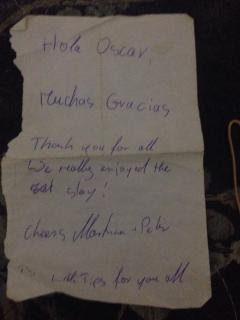 Hola Oscar,
Muchas Gracias
Thank you for all
We really enjoyed the
stay!
Cheers + Peter
Tips for you all